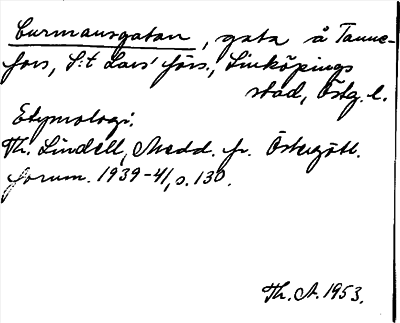 Curmansgatan, gata å Tanne-
fors, S:t Lars' förs., Linköpings
stad, Östg. l.
Etymologi.
Th. Lindell, Medd. fr. Östergötl.
fornm. 1939-41, s. 130.
Th. A. 1953.